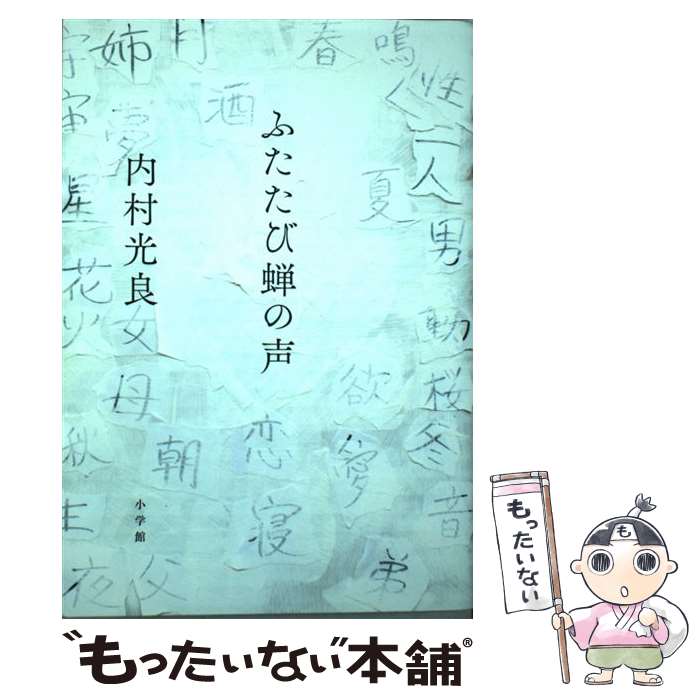 ふたたび蝉の声
内村光良
小学館
性
二人
男
動
桜
冬
音
鳴く
夏
弟
春
欲
酒
恋
寝
月
朝
姉
夢
女
母
父
宇宙
星
花火
秋
生
夜
も
もったいない
"もったいない"本舗®